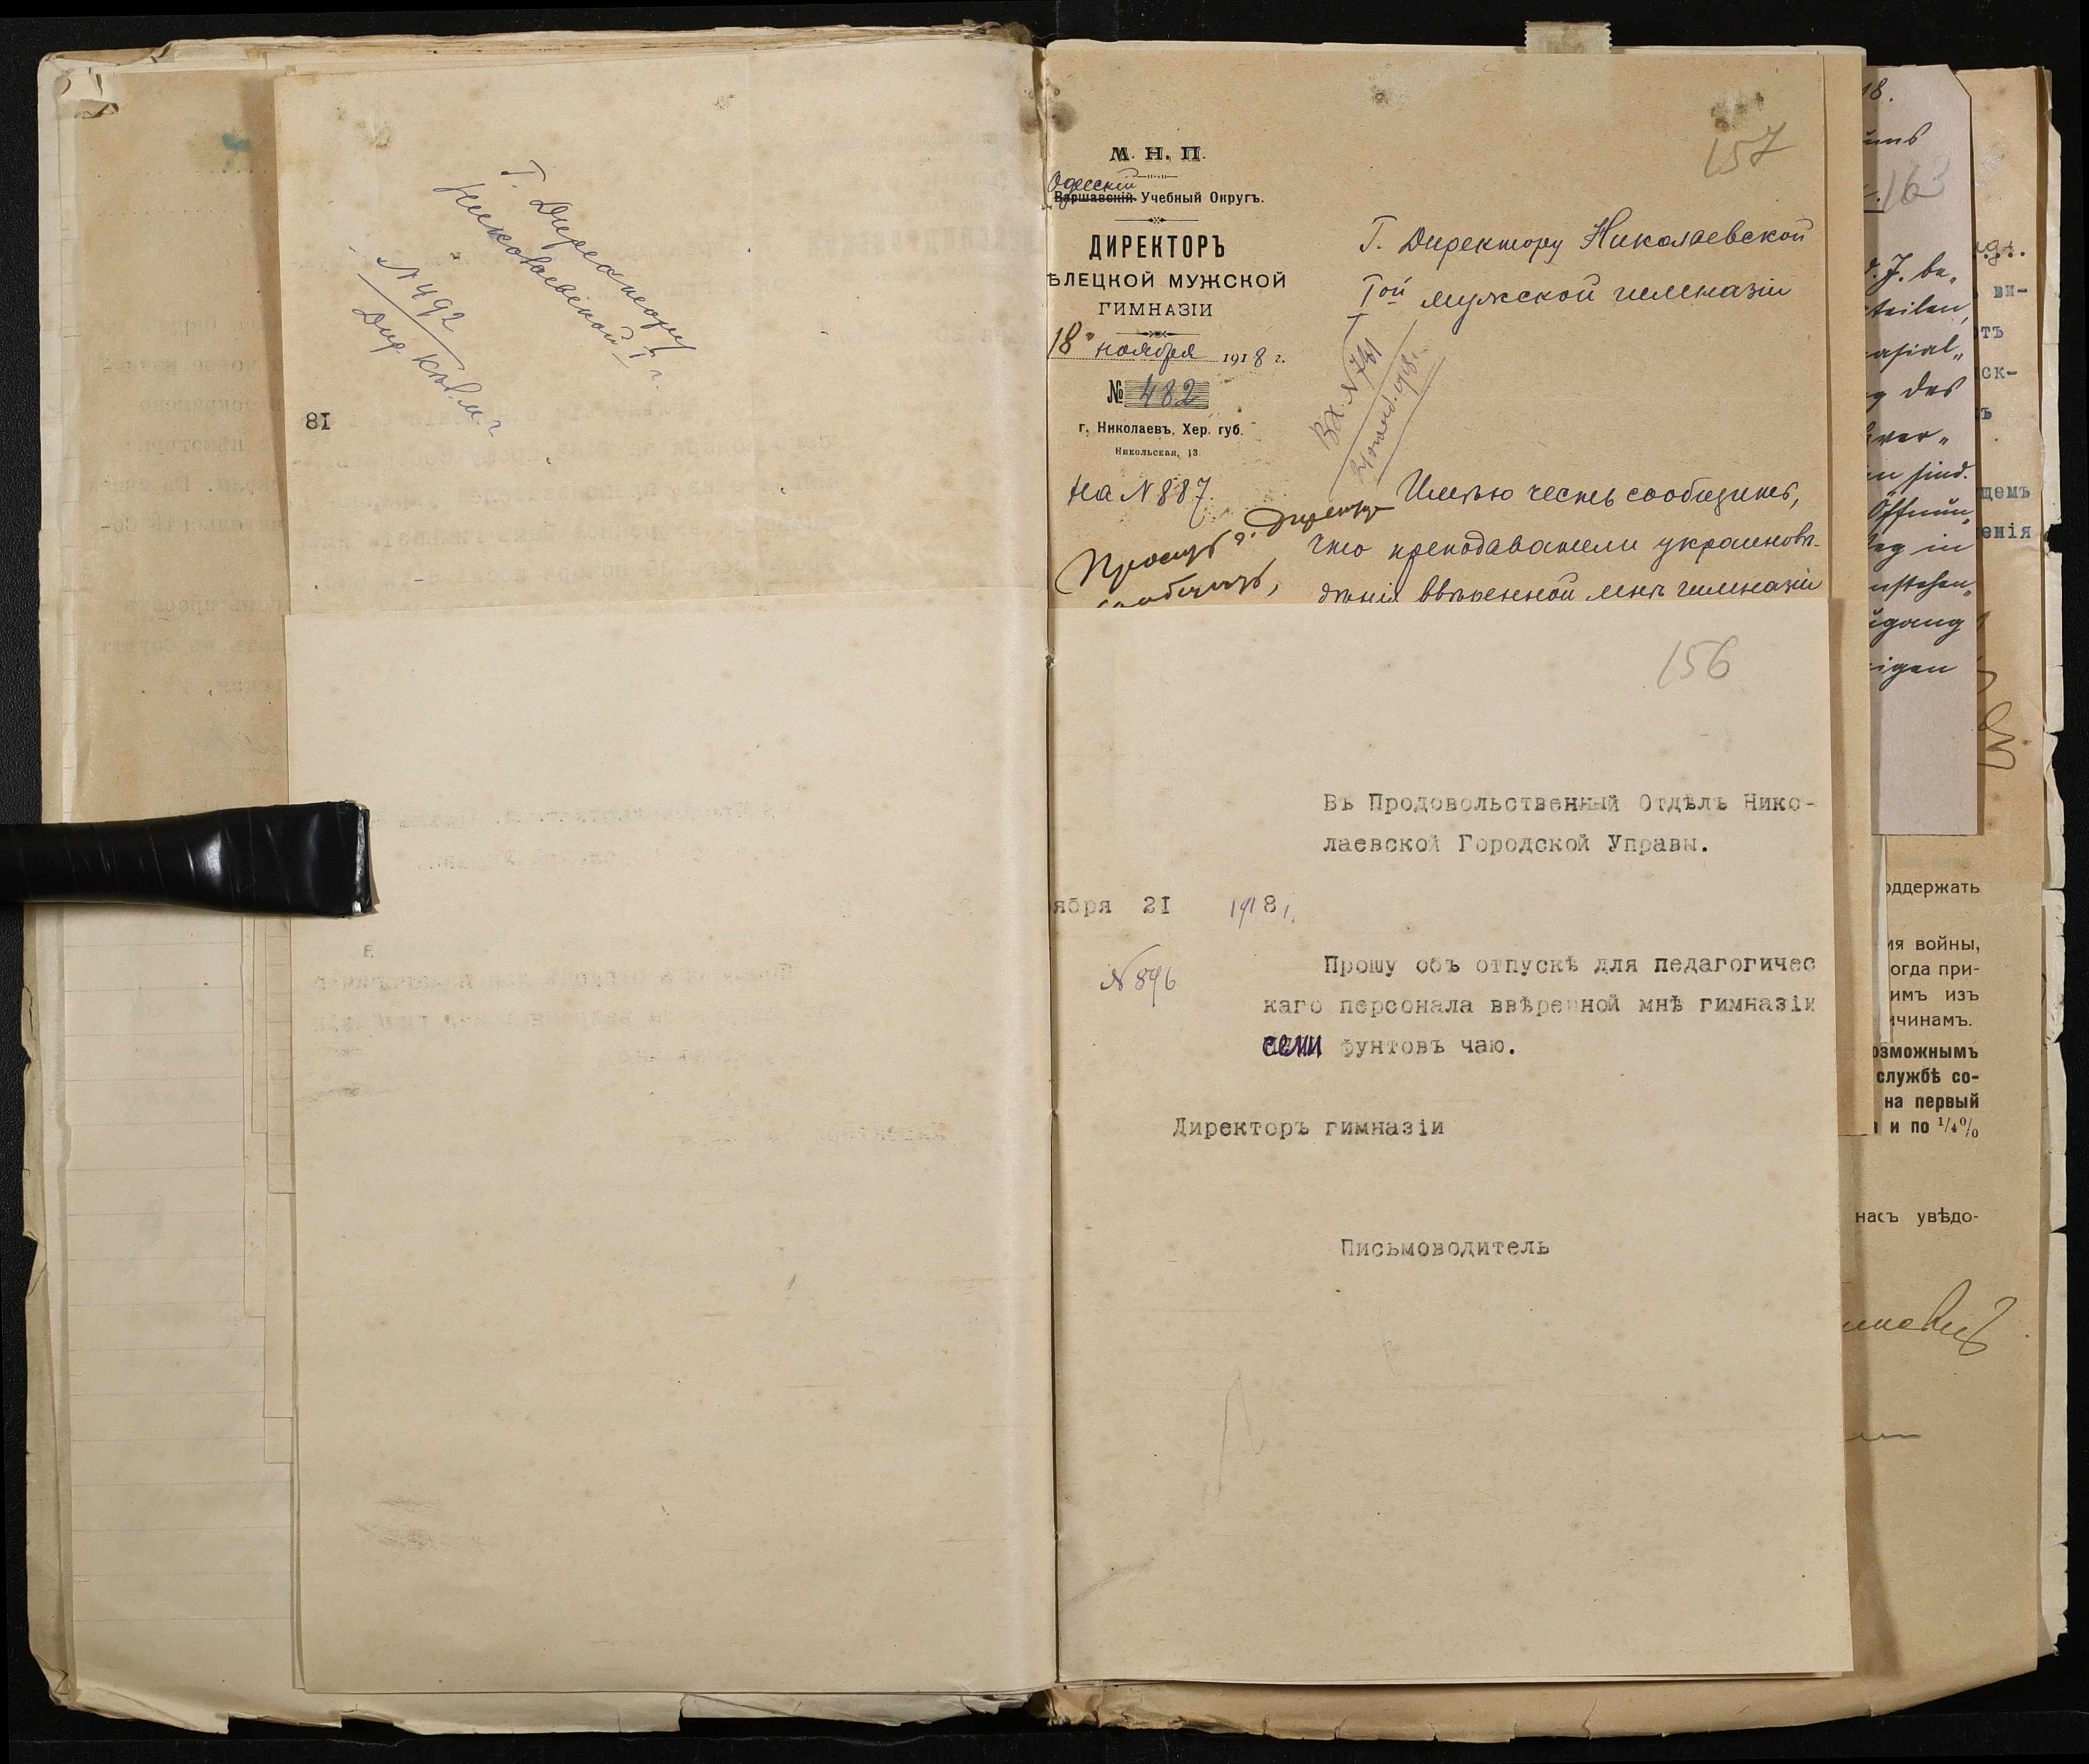 Г. Директору
Николаевской I г.
N 492
Дир. Кѣл. м. г.
18
М. Н. П.
Одесскій
Варшавскій Учебный Округъ.
ДИРЕКТОРЪ
ѢЛЕЦКОЙ МУЖСКОЙ
ГИМНАЗІИ
18" ноября 1918 г.
№ 482
г. Николаевъ, Хер. губ.
Никольская, 13
На N 887.
157
Г. Директору Николаевской
I ой мужской гимназіи
Вх. N 741
Имѣю честь сообщить,
что преподаватели украиновѣ-
дѣнія ввѣренной мнѣ гимназіи
Прошу г. Директора
сообщить,
156
Въ Продовольственный Отдѣлъ Нико-
лаевской Городской Управы.
ября 21 1918 г.
N 896
Прошу объ отпускѣ для педагогичес
каго персонала ввѣренной мнѣ гимназіи
семи фунтовъ чаю.
Директоръ гимназіи
Письмоводитель
18.
163
d. J. be„
teilen,
asial„
g des
n sind.
Öffnun„
eg in
igen
ви-
тъ
ск-
ъ
щемъ
енія
оддержать
ия войны,
огда при-
имъ изъ
ичинамъ.
озможнымъ
службѣ со-
на первый
и по ¼%
насъ увѣдо-